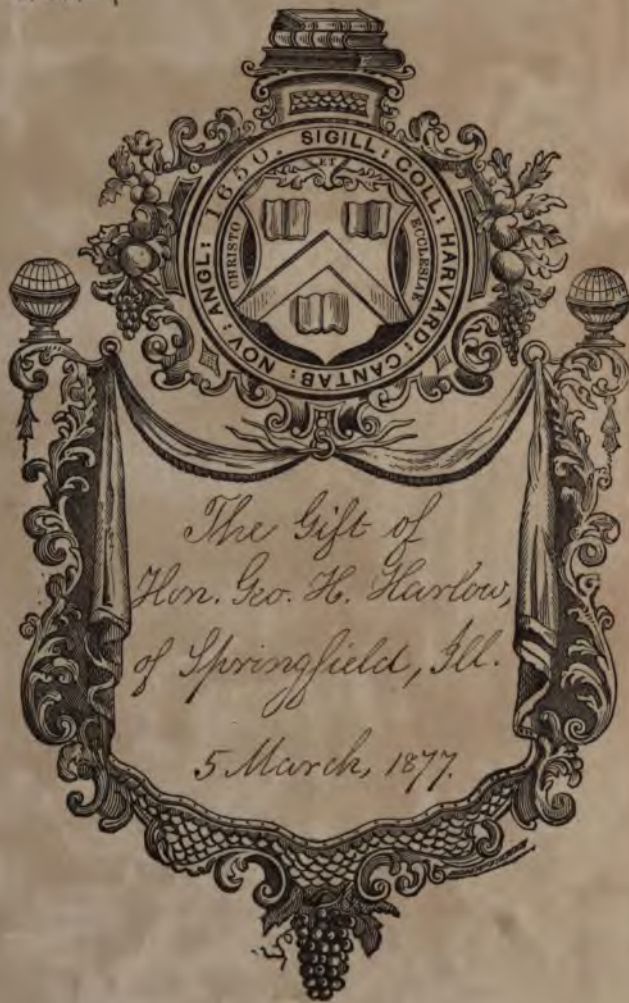 SIGILL: COLL: HARVARD: CANTAB: NOV: ANGL: 1650.
CHRISTO
ET
ECCLESIAE
The Gift of
Hon. Geo. H. Harlow,
of Springfield, Ill.
5 March, 1877.